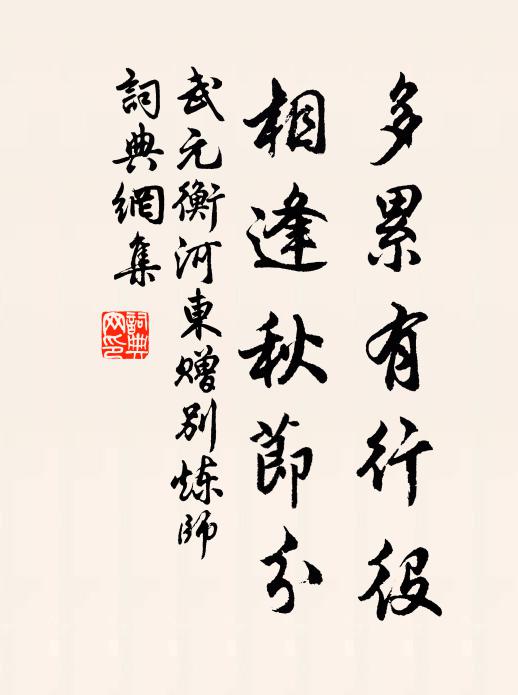 多累有行役
相逢秋節分
武元衡河東赠别炼師
詞典網集
詞典網印